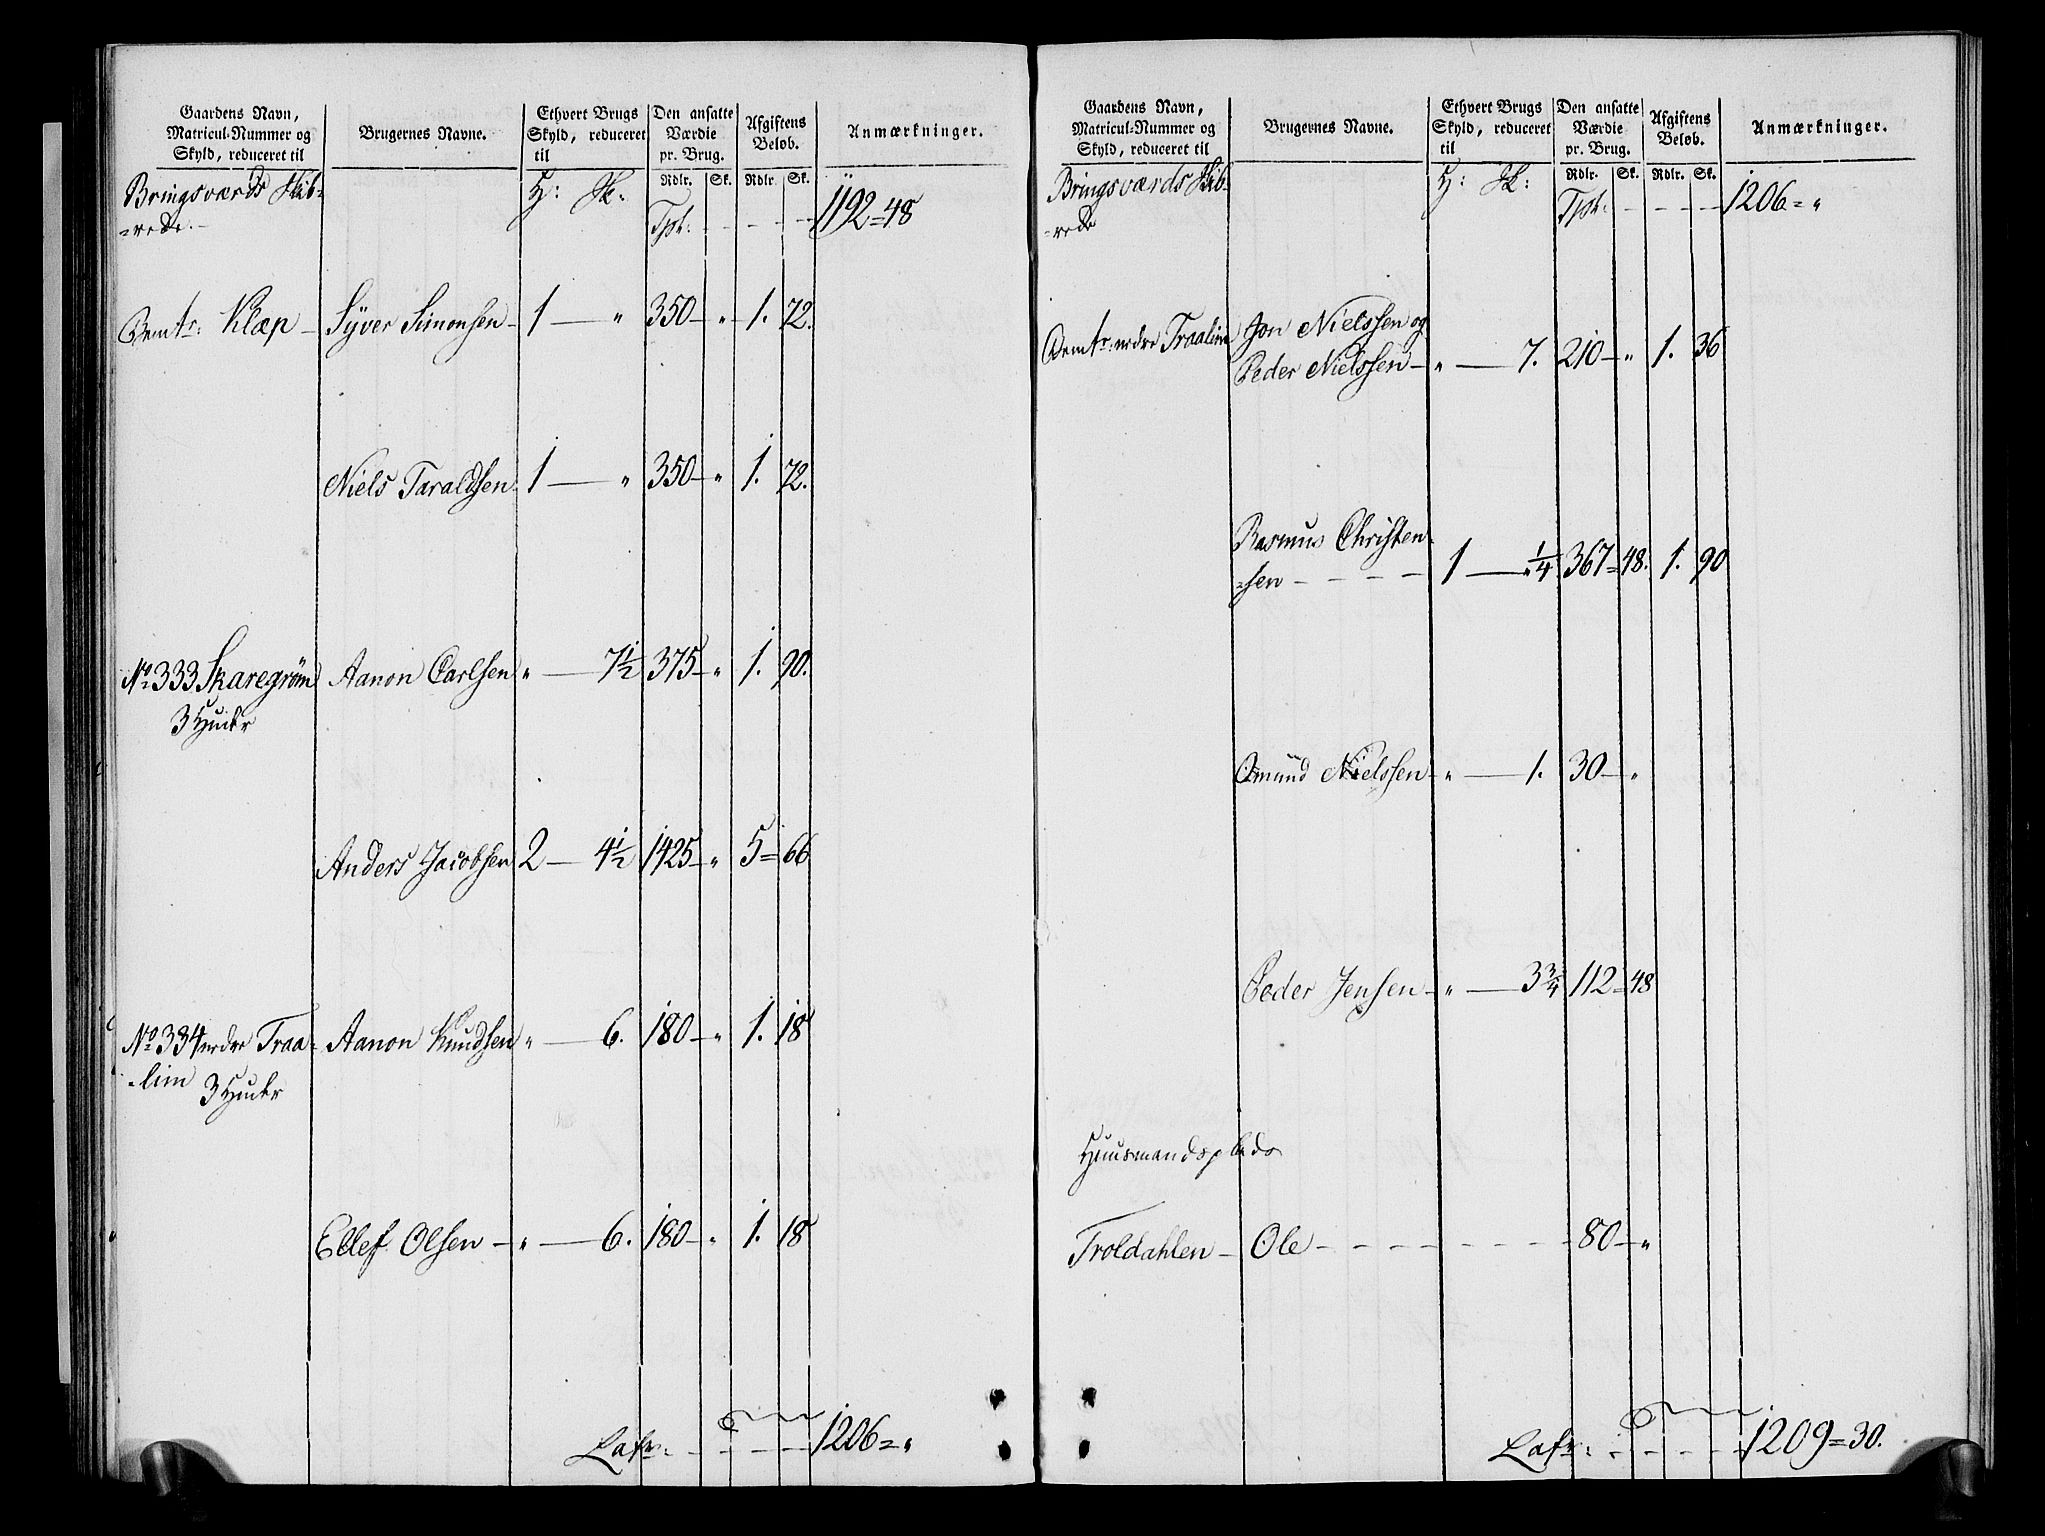 Gaardens Navn, Matricul-Nummer og Skyld, reduceret til | Brugernes Navne. | Ethvert Brugs Skyld, reduceret til | Den ansatte Værdie pr. Brug. | Afgiftens Beløb. | Anmærkninger.
Rdlr. | Sk. | Rdlr. | Sk.
Bringsværds Skib- H: Sk:
=rede. Tpt: - - - - 1192=48
Klep Syver Simonsen 1 — „ 350 „ 1. 72.
Niels Taraldsen 1 — „ 350 „ 1. 72.
No 333 Skaregrøm Aanon Carlsen „ — 7½ 375 „ 1. 90.
3 Huder
Anders Jacobsen 2 — 4½ 1425 „ 5= 66
No 334 nedre Traa- Aanon Knudsen „ — 6. 180 „ 1. 18
-lim 3 Huder
Ellef Olsen „ — 6. 180 „ 1. 18
Lafr: - - - - 1206= „
Gaardens Navn, Matricul-Nummer og Skyld, reduceret til | Brugernes Navne. | Ethvert Brugs Skyld, reduceret til | Den ansatte Værdie pr. Brug. | Afgiftens Beløb. | Anmærkninger.
Rdlr. | Sk. | Rdlr. | Sk.
Bringsværds Skib- H: Sk:
=rede Tpt: - - - - 1206= „
nedre Traalim Jon Nielssen og
Peder Nielssen — „ — 7. 210 — „ 1. 36
Rasmus Christen-
=sen - - - - 1 — „ ¼ 367= 48. 1. 90
Omund Nielssen — „ — 1. 30 — „
Peder Jensen — „ — 3¾ 112= 48
Huusmandsplads
Troldahlen — Ole - - - - - - - 80 — „
Lafr: - - - - 1209=30.